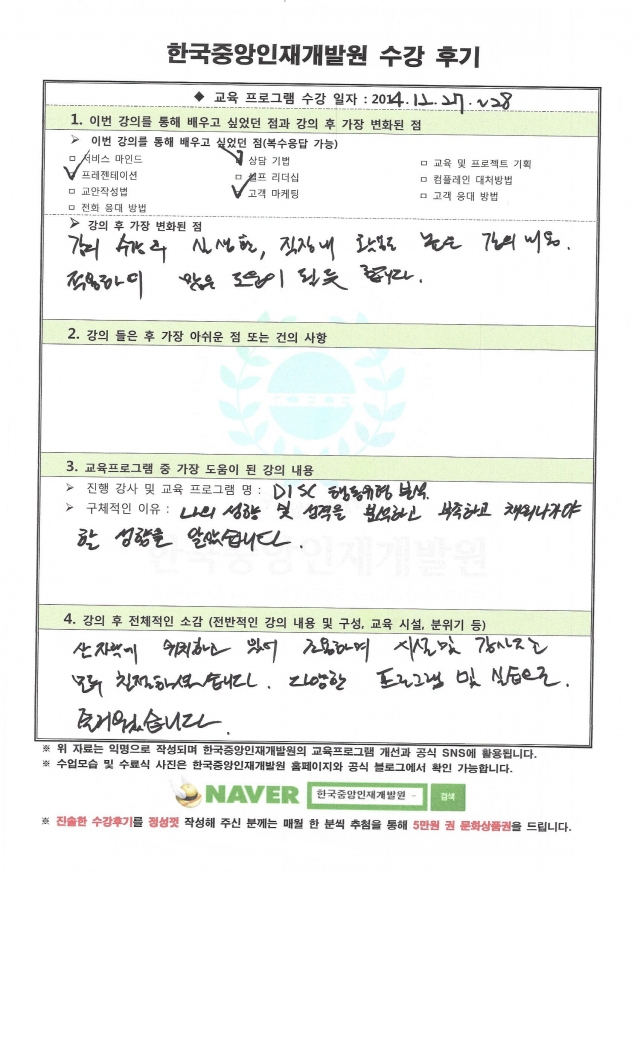 한국중앙인재개발원 수강 후기
◆ 교육 프로그램 수강 일자 : 2014. 12. 27. ~ 28
1. 이번 강의를 통해 배우고 싶었던 점과 강의 후 가장 변화된 점
➢ 이번 강의를 통해 배우고 싶었던 점(복수응답 가능)
□ 서비스 마인드 □ 상담 기법 □ 교육 및 프로젝트 기획
□ 프레젠테이션 □ 셀프 리더십 □ 컴플레인 대처방법
□ 교안작성법 □ 고객 마케팅 □ 고객 응대 방법
□ 전화 응대 방법
➢ 강의 후 가장 변화된 점
강의 수강 후 실생활, 직장내 활용도 높은 강의 내용.
적용하여 많은 도움이 될 듯 합니다.
2. 강의 들은 후 가장 아쉬운 점 또는 건의 사항
3. 교육프로그램 중 가장 도움이 된 강의 내용
➢ 진행 강사 및 교육 프로그램 명 : DISC 행동유형 분석.
➢ 구체적인 이유 : 나의 성향 및 성격을 분석하고 부족하고 채워나가야
할 성향을 알았습니다.
한국중앙인재개발원
4. 강의 후 전체적인 소감 (전반적인 강의 내용 및 구성, 교육 시설, 분위기 등)
산자락에 위치하고 있어 조용하며 시설 및 강사진은
모두 친절하셨습니다. 다양한 프로그램 및 실습으로.
즐거웠습니다.
※ 위 자료는 익명으로 작성되며 한국중앙인재개발원의 교육프로그램 개선과 공식 SNS에 활용됩니다.
※ 수업모습 및 수료식 사진은 한국중앙인재개발원 홈페이지와 공식 블로그에서 확인 가능합니다.
NAVER 한국중앙인재개발원 검색
※ 진솔한 수강후기를 정성껏 작성해 주신 분께는 매월 한 분씩 추첨을 통해 5만원 권 문화상품권을 드립니다.